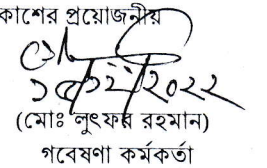 কাশের প্রয়োজনীয়
২০২২
(মোঃ লুৎফর রহমান)
গবেষণা কর্মকর্তা